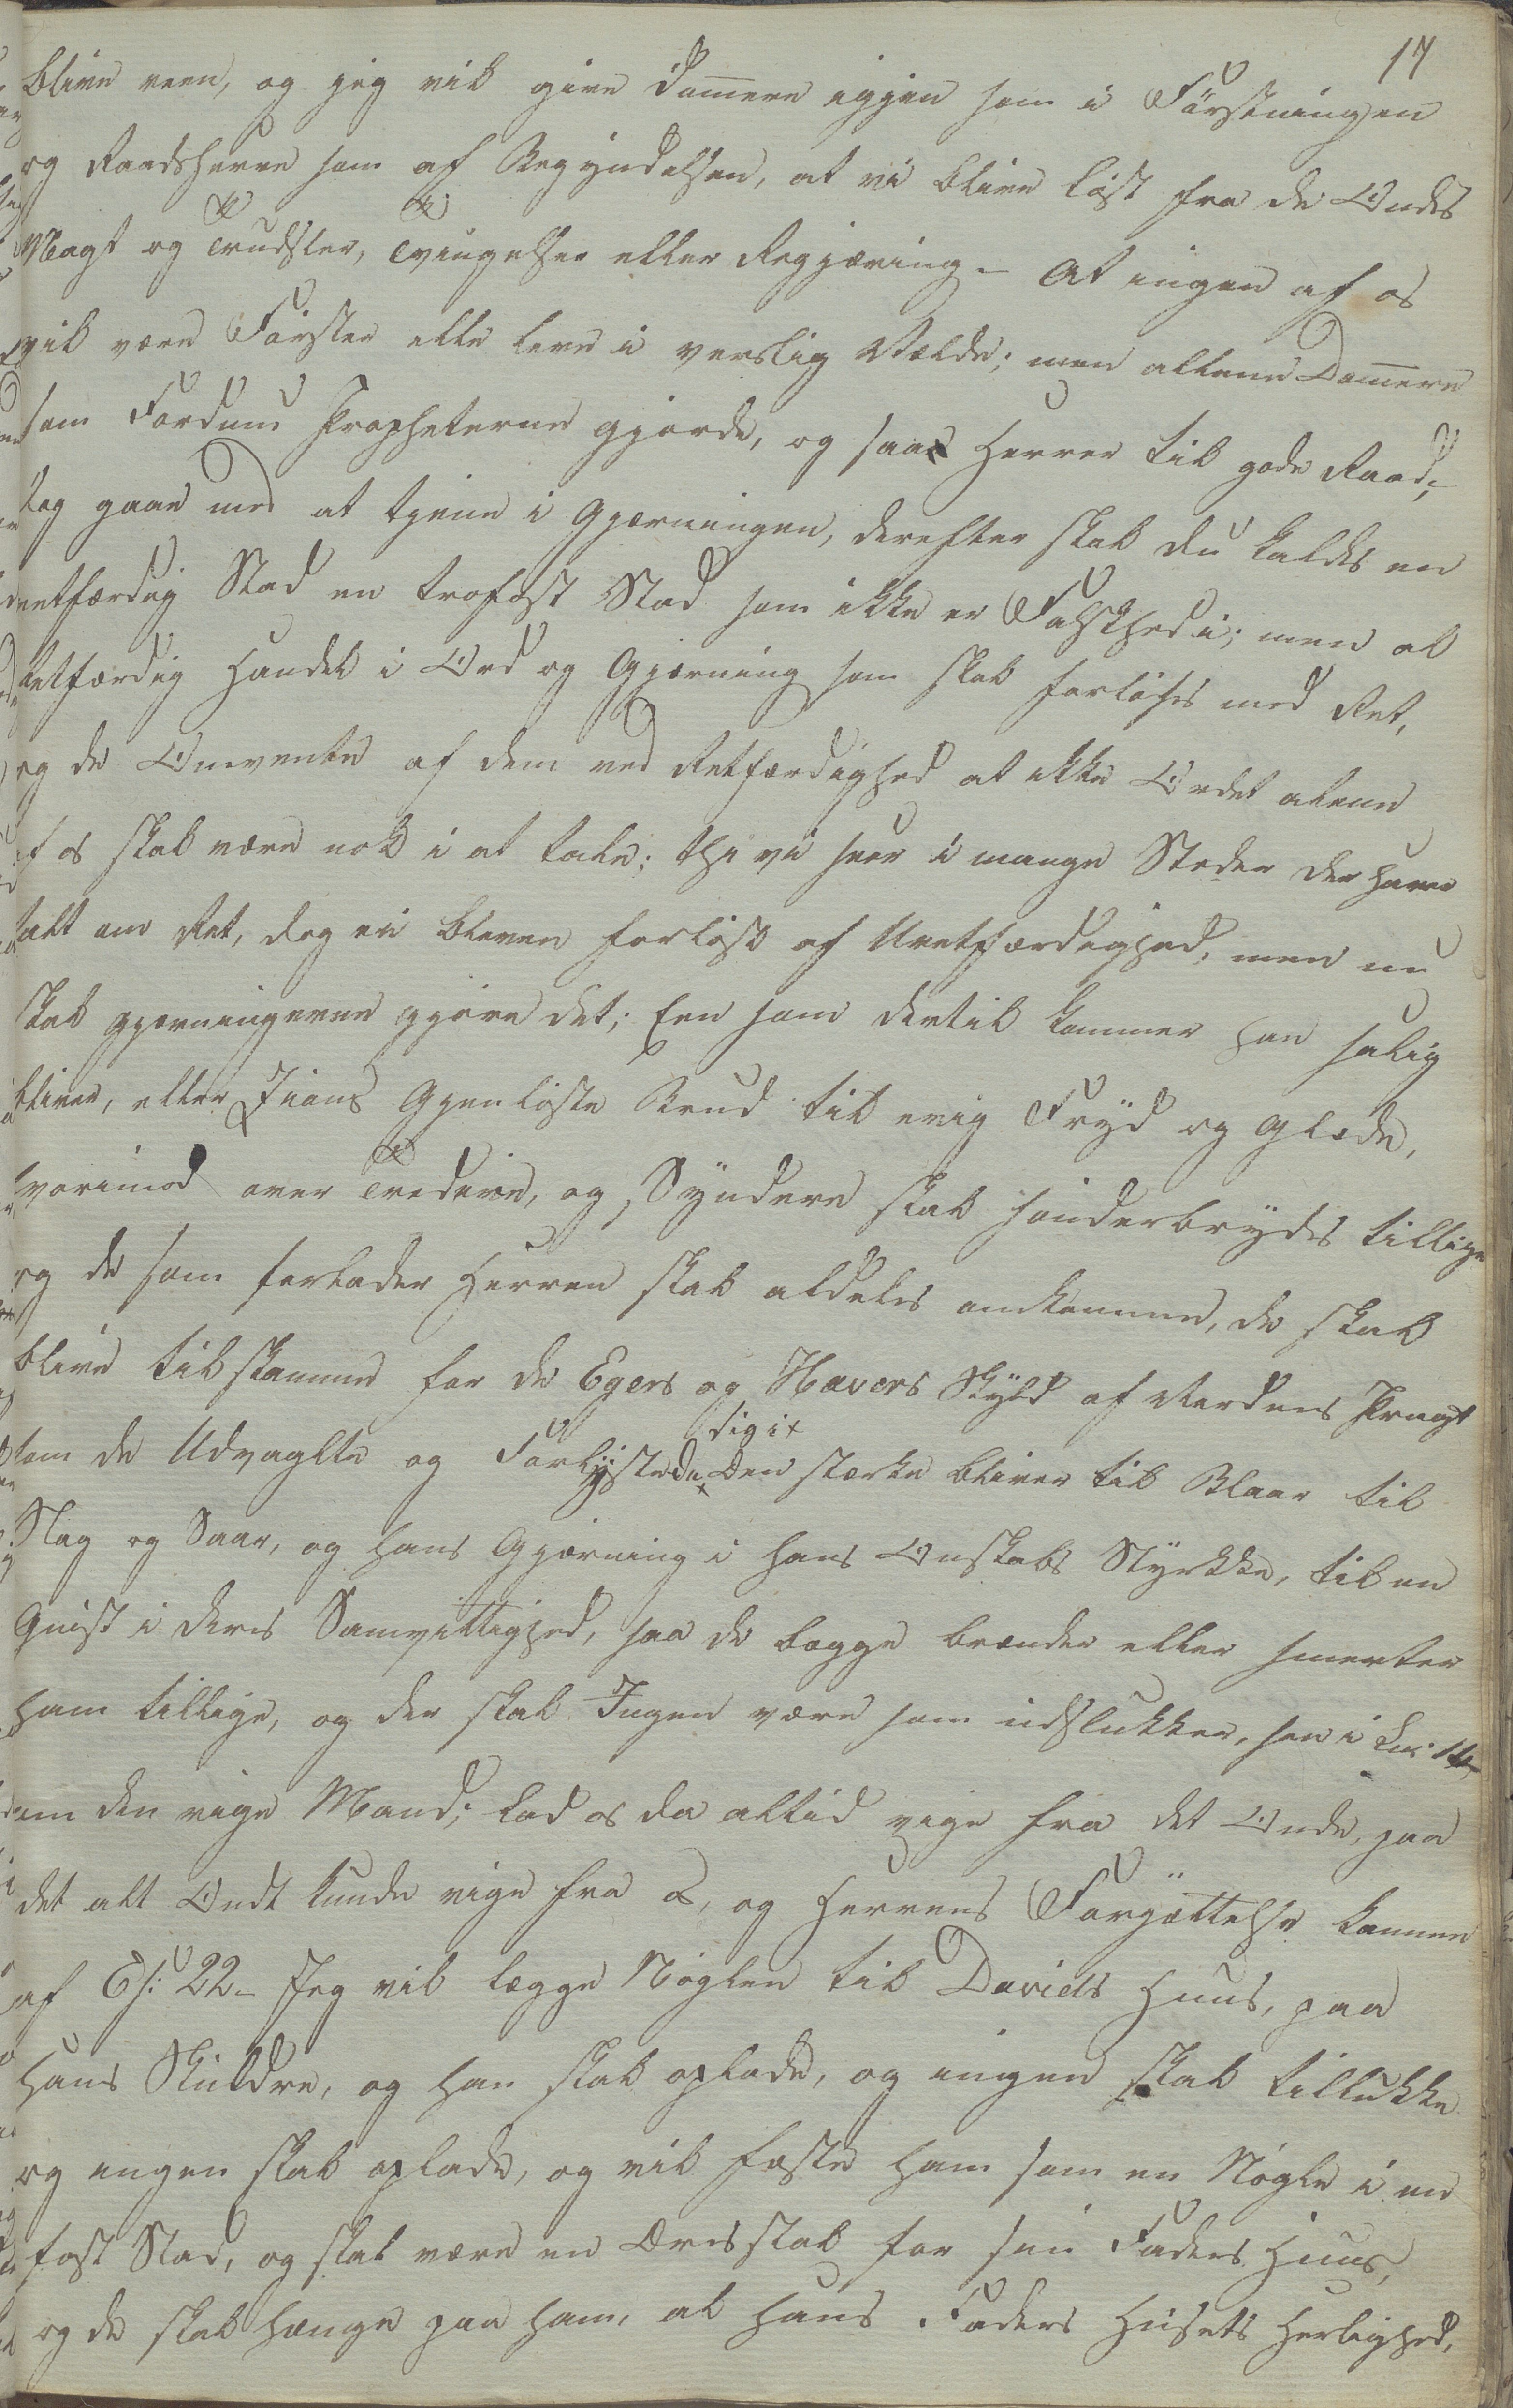 17
blive reen, og jeg vil give Dom̅ere igjen som i Førstningen
og Raadsherre som af Begyndelsen, at vi blive løst fra de Ondes
Magt og Trudsler, Tvingelser eller Regjæring. At ingen af os
vil være Førster elle leve i verslig Vælde; men allene Dom̅ere
som Fordum Propheterne gjorde, og saa Herrer til gode Raad;
Læg gaae med at tjene i Gjærningen, derefter skal du kaldes en
retfærdig Stad en trofast Stad som ikke er Falskhed i; men al
Retfærdig Handel i Ord og Gjærning som skal forløses med Ret,
og de Omvente af dem ved Retfærdighed at ikke Ordet alene
af os skal være nok i at tale; thi vi seer i mange Steder der have
talt om Ret, dog ei bleven forløst af Uretfærdighed, men nu
skal gjærningerne gjøre det; Een som dertil kommer han salig
bliver, eller Zions Gjenløste Brud til evig Fryd og Glæde,
hvorimod over Trædere, og Syndere skal sønderbrydes tillige
og de som forlader Herren skal aldeles omkomme, de skal
blive tilskamme for de Egers og Havers Skyld af Verdens Pragt
som de Udvaglte og Forlystede
sig i x
x Den stærke bliver til Blaar til
Slag og Saar, og hans Gjærning i hans Onskabs Styrkke, til en
Gnist i deres Samvittighed, saa de begge brænder eller smerter
ham tillige, og der skal Ingen være som udslukker, see i Luc: 16
om den rige Mand; lad os da altid vige fra det Onde, paa
det alt Ondt kunde vige fra os, og Herrens Forjættelse komme
af Es: 22 – Jeg vil lægge Nøglen til Davids Huus, paa
hans Skuldre, og han skal oplade, og ingen skal tillukke
og ingen skal oplade, og vil fæste ham som en Nøgle i en
fast Stad, og skal være en Æresstol for sin Faders Huus,
og de skal hænge paa ham, al hans Faders Husets Herlighed,